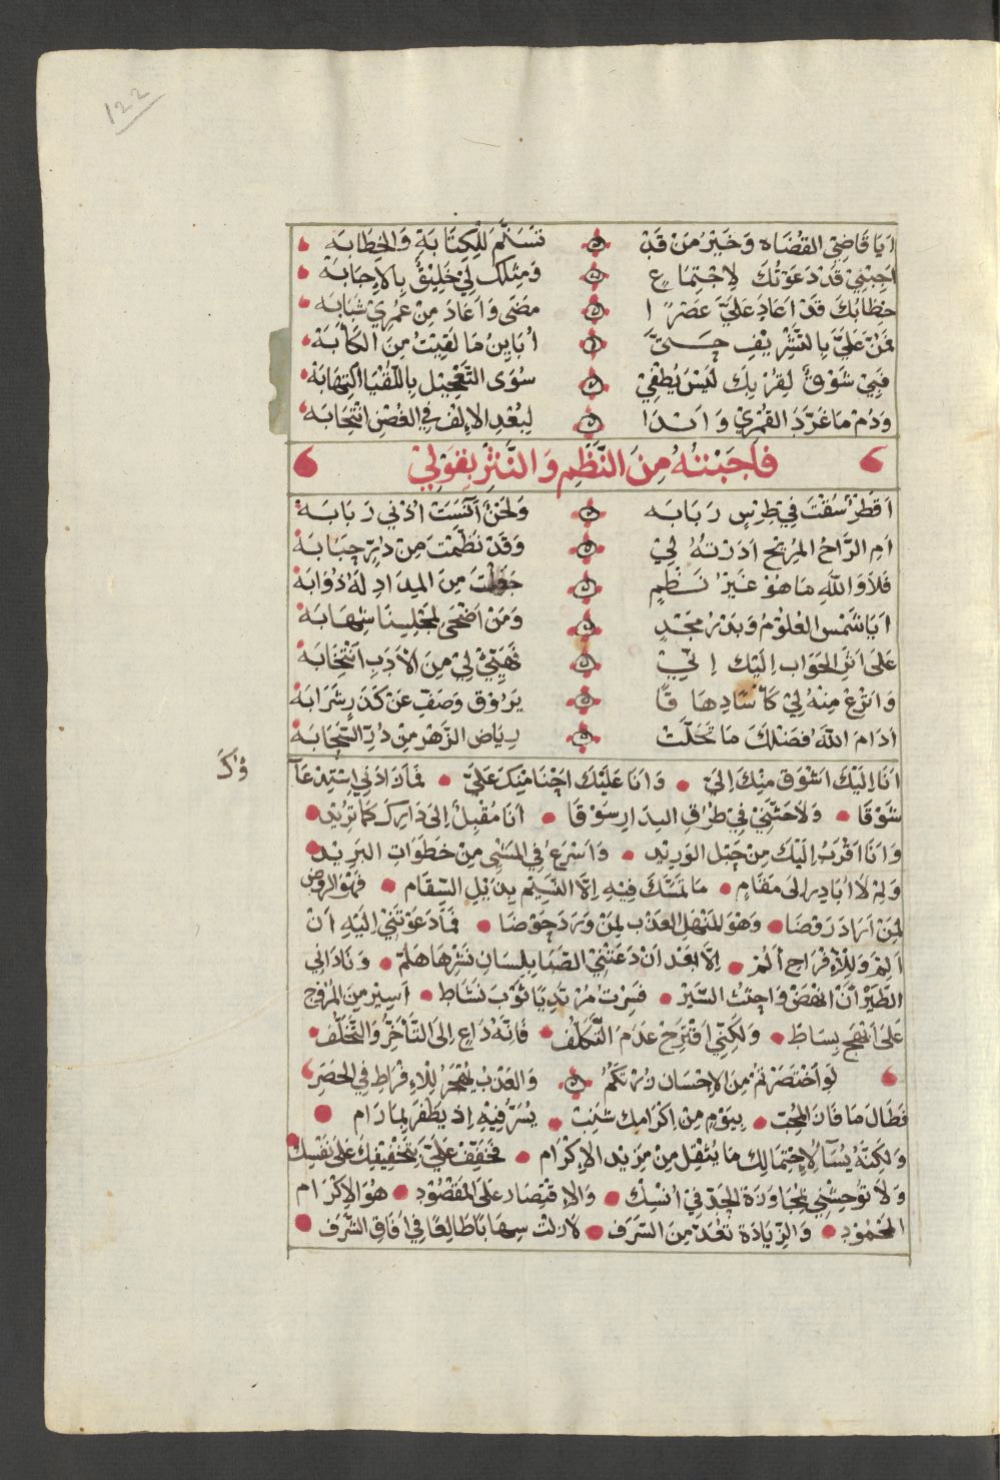 122
ايَا قَاضِيَ القُضَاه وَخَيْرُ مَنْ قَدْ تَسَنَّمَ لِلْكِتَابَةِ وَالخِطَابَه
اجِبْنِيْ قَدْ دَعَوْتُكَ لاِجْتِمَاعٍ وَمِثلكَ لِيْ خَلِيْقٌ بِالاِجَابَهْ
خِطَابُكَ قَدْ اعَادَ عَلَيَّ عَصْرًا مَضَى وَاعَادَ مِنْ عُمُرِيْ شَبَابَه
فَمُنَّ عَلَيَّ بِالتَّشْرِيْفِ حَتىَّ اُبَايِنُ مَا لَقِيْتُ مِنَ الكَآبَهْ
فَبِيْ شَوْقٌ لِقُرْبِكَ لَيْسَ يُطْفِيْ سُوَى التَّعْجِيْل بِاللُّقْيَا الْتِهَابَهْ
وَدُمْ مَا غَرَّدَ القُمْرِيْ وَابْدَا لِبُعْدِ الاِلْفِ فِي الغُصْنِ انْتِحَابَه
فَاجَبْتُهُ مِنَ النَّظْمِ وَالنَّثْرِ بِقَوْلِيْ
اَقَطْرٌ سُقْتَ فِيْ طِرْسٍ رَبَابَه وَلَحْنٌ آنَسَتْ اُذْنِي رَبَابَهْ
امِ الرَّاحُ المُرِيْحُ ادَرْتَهُ لِيْ وَقَدْ نَظَمْتَ مِنْ دُرٍّ حِبَابَهْ
فَلاَ وَاللهِ مَا هُوْ غَيْرُ نَظْمٍ جَعَلْتَ مِنَ المِدَادِ لَهُ ذُؤَابَهْ
ايَا شَمْسَ العُلُوْمِ وَبَدْرُ مَجْدٍ وَمَنْ اضْحَى لِمَجْلِسِنَا شِهَابَهْ
عَلَى اثَرِ الجَوَابِ اِلَيْكَ اِنِّيْ فَهَيِّئْ لِيْ مِنَ الاَدَبِ انْتِخَابَهْ
وَاتْرِعْ مِنْهُ لِيْ كَأْسًا دِهَاقًا يَرُوْق وَصَفِّ عَنْ كَدَرٍ شَرَابَه
ادَامَ اللهُ فَضْلَكَ مَا تَحَلَّتْ رِيَاضُ الزَّهْرِ مِنْ دُرِّ السَّحَابَهْ
انَا اِلَيْكَ اشْوَقُ مِنْكَ اِلَيَّ وَانَا عَلَيْكَ احْنَا مِنْكَ عَلَيَّ فَمَا زَادَنِي اسْتِدْعَآؤكَ
شَوْقَا وَلاَ حَثَّنِيْ فِيْ طُرُقِ البِدَارِ سَوْقَا انَا مُقْبِلٌ اِلَى دَارِكَ كَمَا تُرِيْد
وَانَا اقْرَبُ اِلَيْكَ مِنْ حَبْلِ الوَرِيْدِ وَاسْرَعُ فِي المَشْيِ مِنْ خَطَوَاتِ البَرِيْدِ
وَلِمْ لاَ اُبَادِر اِلَى مَقَامٍ مَا تَمَسَّكَ فِيْهِ اِلاَّ النَّسِيْم بِذَيْلِ السِّقَامِ فَهُوَ الرَّوْض
لِمَنْ ارَادَ رَوْضَا وَهْوَ المَنْهَلُ العَذْب لِمَنْ وَرَدَ حَوْضَا فَمَا دَعَوْتَنِيْ اِلَيْهِ انْ
اَلِمْ وَلِلاَفْرَاحِ اُلَمْ اِلاَّ بَعْدَ انْ دَعَتْنِيْ الصَّبَا بِلِسَانِ نَشْرِهَا هَلُمّ وَنَادَانِي
الطَّيْرُ انْ انْهَضْ وَاحْثُثِ السَّيْرْ فَسِرْتُ مُرْتَدِيًا ثَوْبَ نَشَاطِ اسِيْر مِنَ المُرُوْجِ
عَلَى ابْهَجِ بِسَاطْ وَلَكِنِّي اقْتَرِحْ عَدَمَ التَّكَلُّف فَاِنَّهُ دَاعٍ اِلَى التَّأَخُّرِ وَالتَّخَلُّف
لَوِ اخْتَصَرْتُمْ مِنَ الاِحْسَانِ زُرْتُكُمُ وَالعَذْبُ يُهْجَرُ لِلاِفْرَاطِ فِي الخَصَرِ
فَطَالَ مَا فَازَ المُحِبّ بِيَوْمٍ مِنْ اِكْرَامِكَ يُسَرُّ فِيْهِ اِذْ يَظْفَرُ بِمَا رَام
وَلَكِنَّهُ يُسَآءُ لاِحْتِمَالِكَ مَا يُثْقِل مِنْ مَزِيْدِ الاِكْرَام فَخَفِّفْ عَلَيَّ بِتَخْفِيْفِكَ عَلَى نَفْسِكْ
وَلاَ تُوْحِشْنِي بِمُجَاوَزَةِ الحَدِّ فِيْ اُنْسِكْ وَالاِقْتِصَار عَلَى المَقْصُوْدِ هُوَ الاِكْرَام
المَحْمُوْدِ وَالزِّيَادَة تُعَدّ مِنَ السَّرَف لاَزِلْتَ شِهَابًا طَالِعًا فِي افَاقِ الشَّرَف